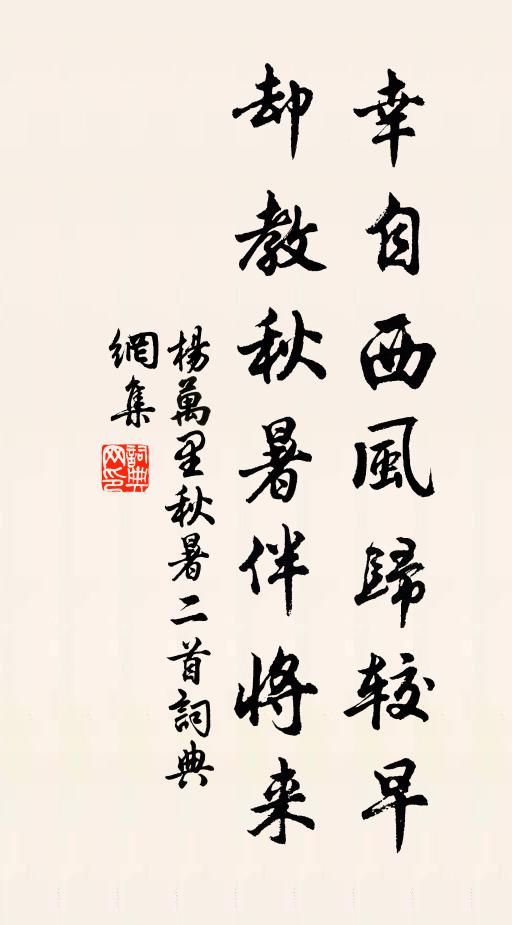 幸自西風歸較早
却教秋暑伴將来
楊萬里秋暑二首詞典
網集
詞典
网印